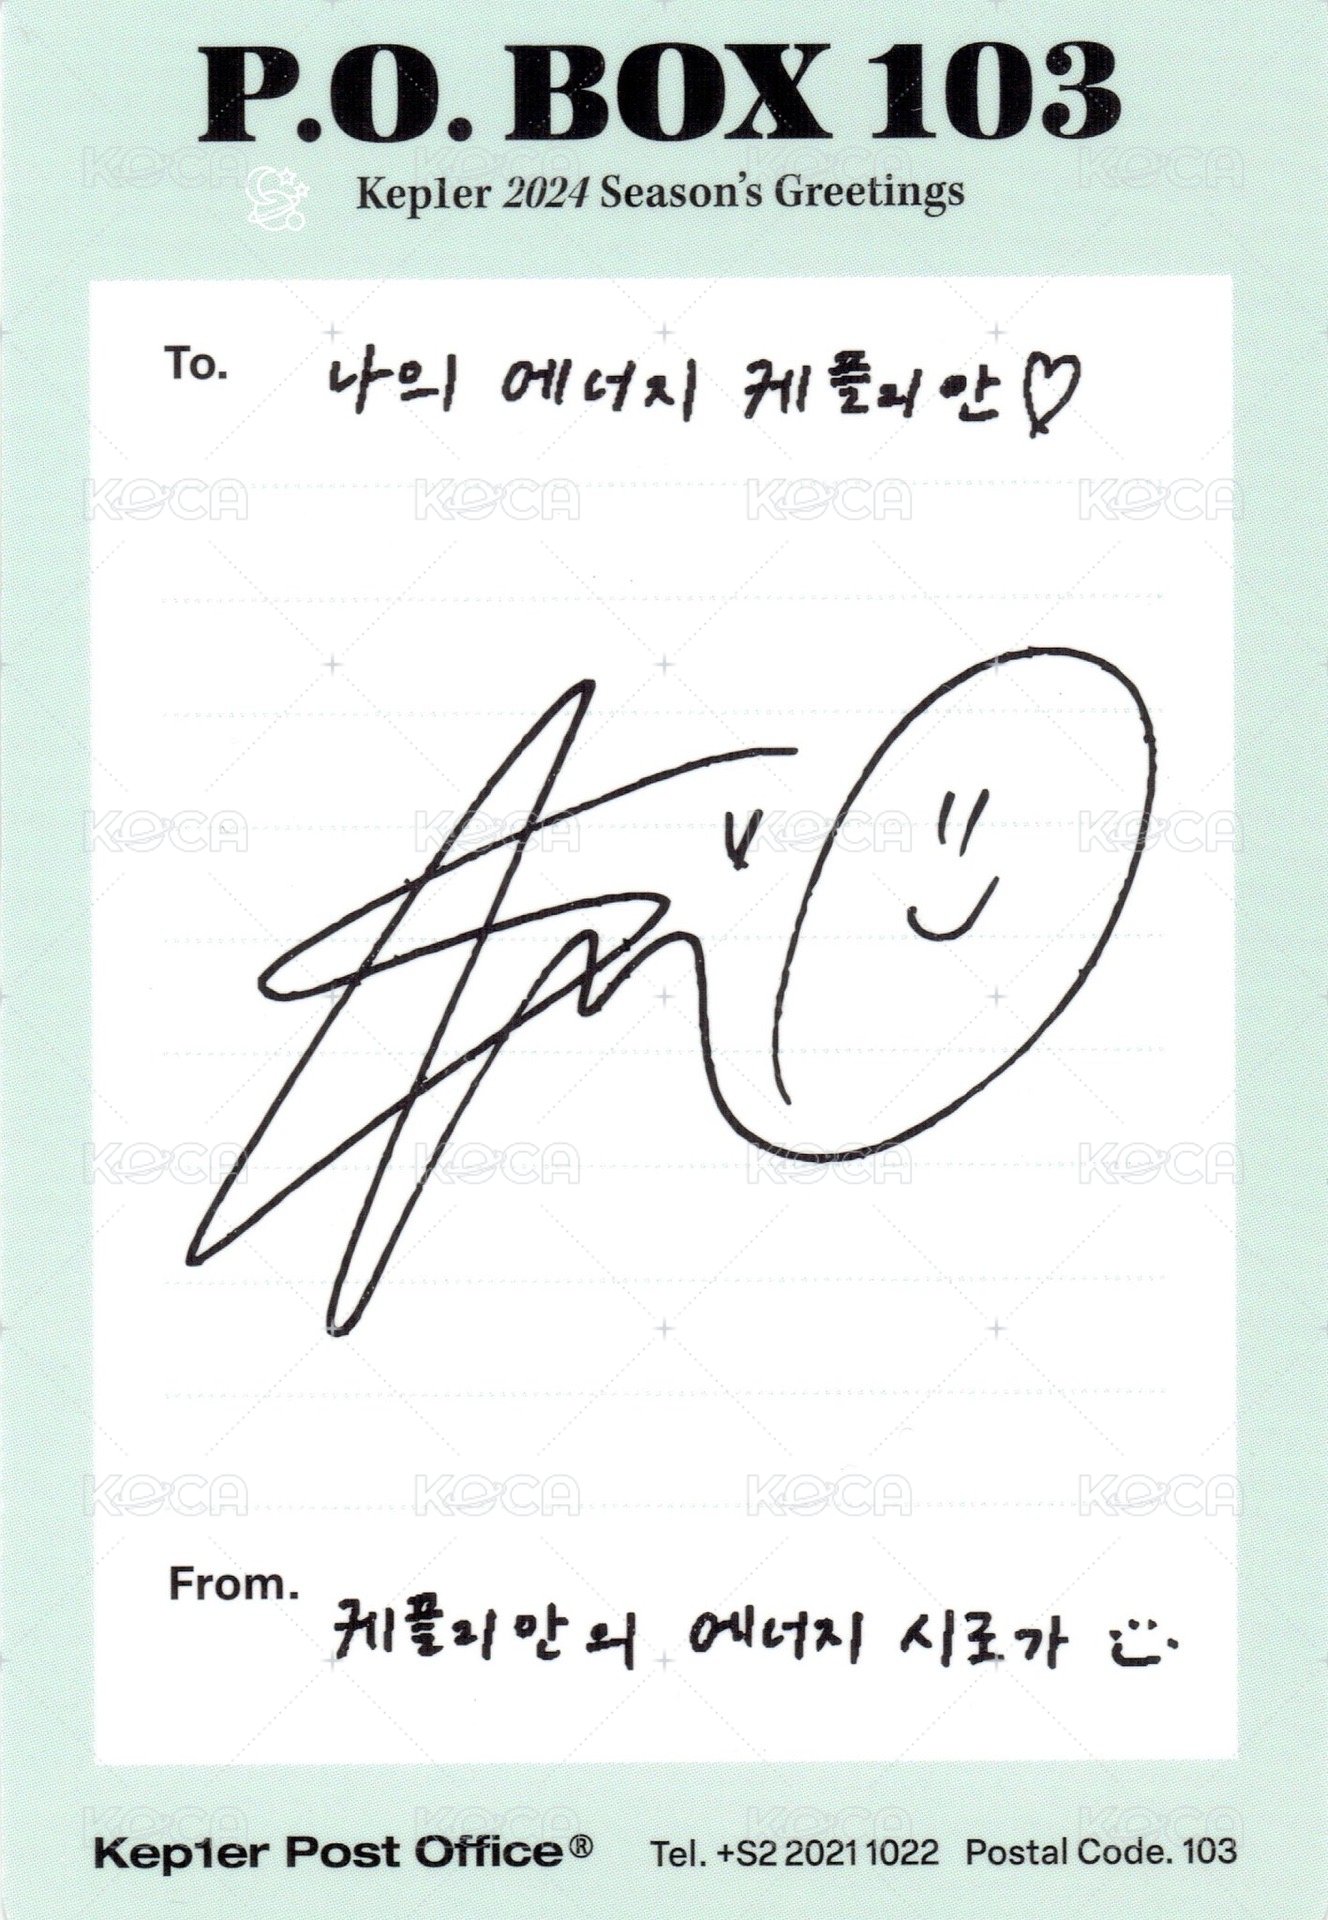 P.O. BOX 103
Kep1er 2024 Season's Greetings
To. 나의 에너지 케플리안♡
From. 케플리안의 에너지 시로가
Kep1er Post Office® Tel. +S2 2021 1022 Postal Code. 103
KOCA